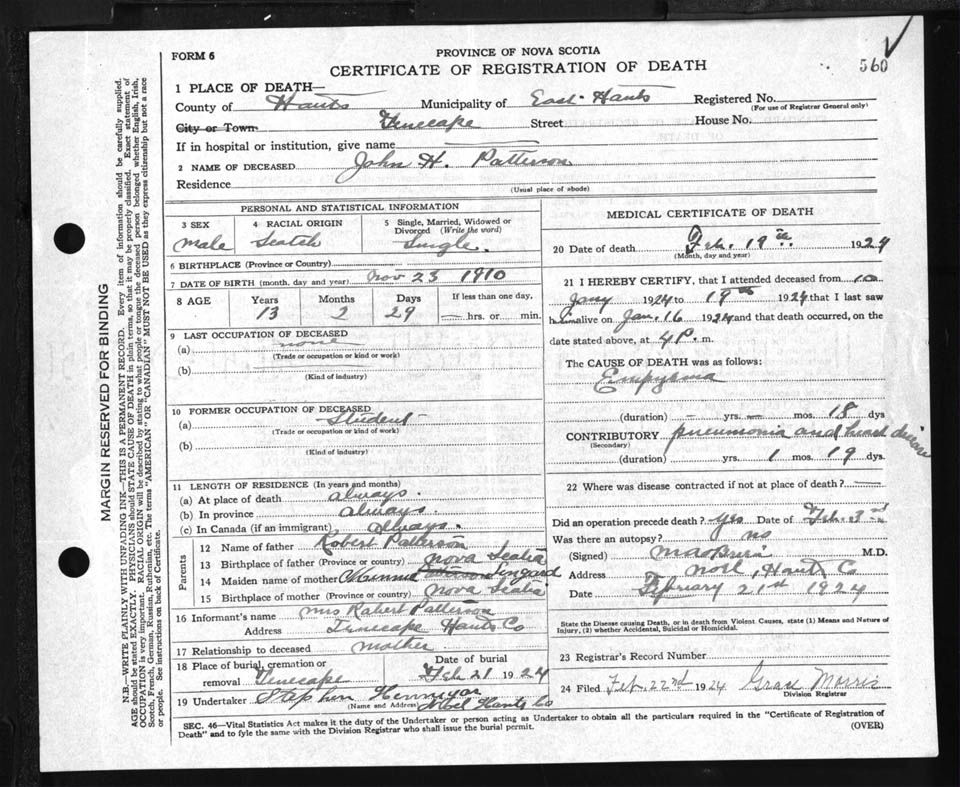 FORM 6
PROVINCE OF NOVA SCOTIA
CERTIFICATE OF REGISTRATION OF DEATH
560
1 PLACE OF DEATH—
County of Hants Municipality of East Hants Registered No.
(For use of Registrar General only)
City or Town Tenecape Street House No.
If in hospital or institution, give name
2 NAME OF DECEASED John H. Patterson
Residence
(Usual place of abode)
PERSONAL AND STATISTICAL INFORMATION
3 SEX male
4 RACIAL ORIGIN Scotch
5 Single, Married, Widowed or Divorced (Write the word) Single.
6 BIRTHPLACE (Province or Country)
7 DATE OF BIRTH (month, day and year) Nov 23 1910
8 AGE Years 13 Months 2 Days 29 If less than one day, hrs. or min.
9 LAST OCCUPATION OF DECEASED
(a) none
(Trade or occupation or kind or work)
(b)
(Kind of industry)
10 FORMER OCCUPATION OF DECEASED
(a) Student
(Trade or occupation or kind of work)
(b)
(Kind of industry)
11 LENGTH OF RESIDENCE (In years and months)
(a) At place of death always.
(b) In province always.
(c) In Canada (if an immigrant) always.
Parents
12 Name of father Robert Patterson
13 Birthplace of father (Province or country) Nova Scotia
14 Maiden name of mother
15 Birthplace of mother (Province or country) Nova Scotia
16 Informant's name Mrs Robert Patterson
Address Tenecape Hants Co
17 Relationship to deceased mother
18 Place of burial, cremation or removal Tenecape Date of burial Feb 21 1924
19 Undertaker Stephen
(Name and Address) Noel Hants Co
MEDICAL CERTIFICATE OF DEATH
20 Date of death Feb. 19th 1924
(Month, day and year)
21 I HEREBY CERTIFY, that I attended deceased from 10
Jany 1924 to 19th 1924 that I last saw
him alive on Jan. 16 1924 and that death occurred, on the
date stated above, at 4 P. m.
The CAUSE OF DEATH was as follows:
Empyema
(duration) — yrs. — mos. 18 dys
CONTRIBUTORY pneumonia and heart disease
(Secondary)
(duration) yrs. 1 mos. 19 dys.
22 Where was disease contracted if not at place of death?
Did an operation precede death? Yes Date of Feb. 3rd
Was there an autopsy? no
(Signed) M.D.
Address Noel, Hants Co
Date February 21st 1924
State the Disease causing Death, or in death from Violent Causes, state (1) Means and Nature of Injury, (2) whether Accidental, Suicidal or Homicidal.
23 Registrar's Record Number
24 Filed Feb. 22nd 1924 Grace Morris
Division Registrar
SEC. 46—Vital Statistics Act makes it the duty of the Undertaker or person acting as Undertaker to obtain all the particulars required in the "Certificate of Registration of
Death" and to fyle the same with the Division Registrar who shall issue the burial permit.
(OVER)
MARGIN RESERVED FOR BINDING
N.B.—WRITE PLAINLY WITH UNFADING INK—THIS IS A PERMANENT RECORD. Every item of information should be carefully supplied.
AGE should be stated EXACTLY. PHYSICIANS should STATE CAUSE OF DEATH in plain terms, so that it may be properly classified. Exact statement of
OCCUPATION is very important. RACIAL ORIGIN will be described by stating to what people or tongue the deceased person belonged whether English, Irish,
Scotch, French, German, Russian, Ruthenian, etc. The terms "AMERICAN" OR "CANADIAN" MUST NOT BE USED as they express citizenship but not a race
or people. See instructions on back of Certificate.